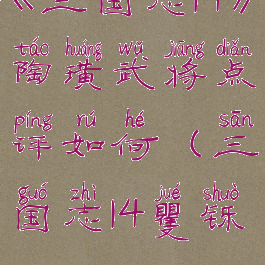 《三国志11》
táo huáng wǔ jiāng diǎn
陶璜武将点
píng rú hé sān
评如何(三
guó zhì jué shuò
国志14矍铄